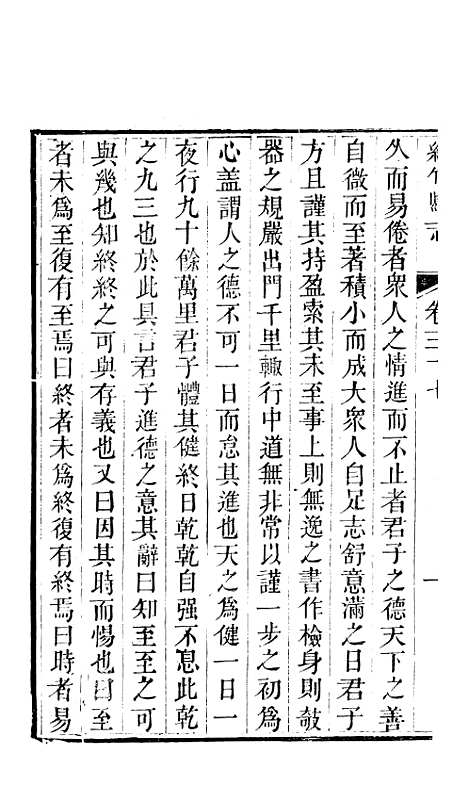 綿竹縣志 卷三十七 一
久而易倦者衆人之情進而不止者君子之德天下之善
自微而至著積小而成大衆人自足志舒意滿之日君子
方且謹其持盈索其未至事上則無逸之書作檢身則攲
器之規嚴出門千里輙行中道無非常以謹一步之初爲
心蓋謂人之德不可一日而怠其進也天之爲健一日一
夜行九十餘萬里君子體其健終日乾乾自强不息此乾
之九三也於此具言君子進德之意其辭曰知至至之可
與幾也知終終之可與存義也又曰因其時而惕也曰至
者未爲至復有至焉曰終者未爲終復有終焉曰時者易